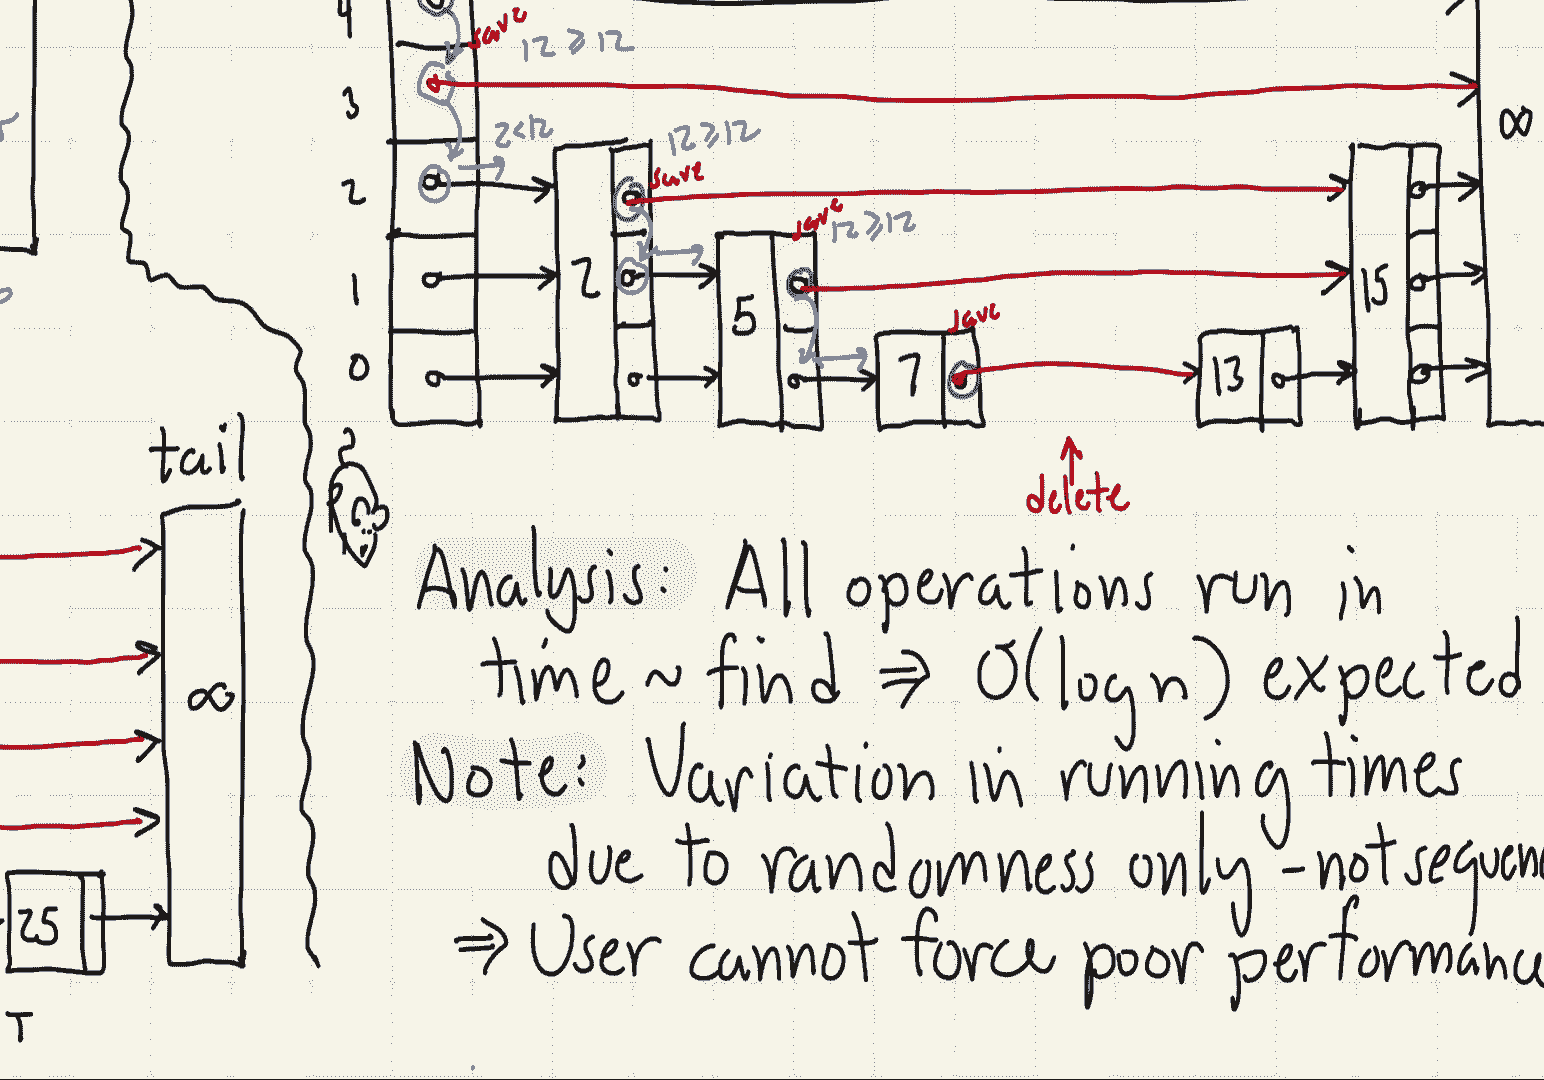 4
save
12 ≥ 12
3
∞
2<12
12 ≥ 12
2
save
save
12 ≥ 12
1
2
5
15
save
0
7
13
tail
delete
Analysis: All operations run in
time ~ find ⇒ O(log n) expected
∞
Note: Variation in running times
due to randomness only - not sequen
25
⇒ User cannot force poor performanc
T